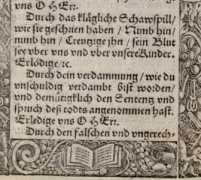 vns O HErr.
Durch das klägliche Schawspill/
wie sie geschrien haben / Nimb hin/
nimb hin / Creutzige jhn / sein Blut
sey vber vns vnd vber vnsere Kinder.
Erlödige/ ꝛc.
Durch dein verdammung / wie du
vnschuldig verdambt bist worden/
vnd demütigklich den Sententz vnd
spruch deß todts angenommen hast.
Erledige vns O HErr.
Durch den falschen vnd vngerech-